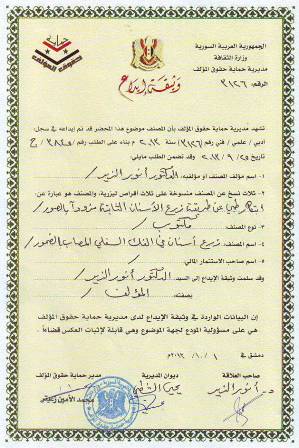 الجمهورية العربية السورية
وزارة الثقافة
مديرية حماية حقوق المؤلف
الرقم: ٣١٢٦
حماية
حقوق المؤلف
وثيقة إيداع
تشهد مديرية حماية حقوق المؤلف بأن المصنف موضوع هذا المحضر قد تم إيداعه في سجل:
أدبي / علمي / فني رقم (٣١٢٦) لعام ٢٠١٣ م بناء على الطلب رقم /
تاريخ ٢٥/ ٩ /٢٠١٣ وقد تضمن الطلب مايلي:
١- اسم مؤلف المصنف أو مؤلفيه: الدكتور أنور الزير/
٢- ثلاث نسخ عن المصنف منسوخة على ثلاث أقراص ليزرية، والمصنف هو عبارة عن
ابتكار طبي عن طريقة زرع الأسنان الثابتة مزوداً بالصور/
٣- نوع المصنف: مكتوب/
٤- اسم المصنف: زرع أسنان في الفك السفلي المصاب بالضمور/
٥- اسم صاحب الاستثمار المالي: /
وقد سلمت وثيقة الإيداع إلى السيد: الدكتور أنور الزير/
بصفته: المؤلف/
إن البيانات الواردة في وثيقة الإيداع لدى مديرية حماية حقوق المؤلف
هي على مسؤولية المودع لجهة الموضوع وهي قابلة لإثبات العكس قضاءً.
دمشق في ١ / ١٠ / ٢٠١٣ م
صاحب العلاقة
د. أنور الزير
ديوان المديرية
مدير حماية حقوق المؤلف